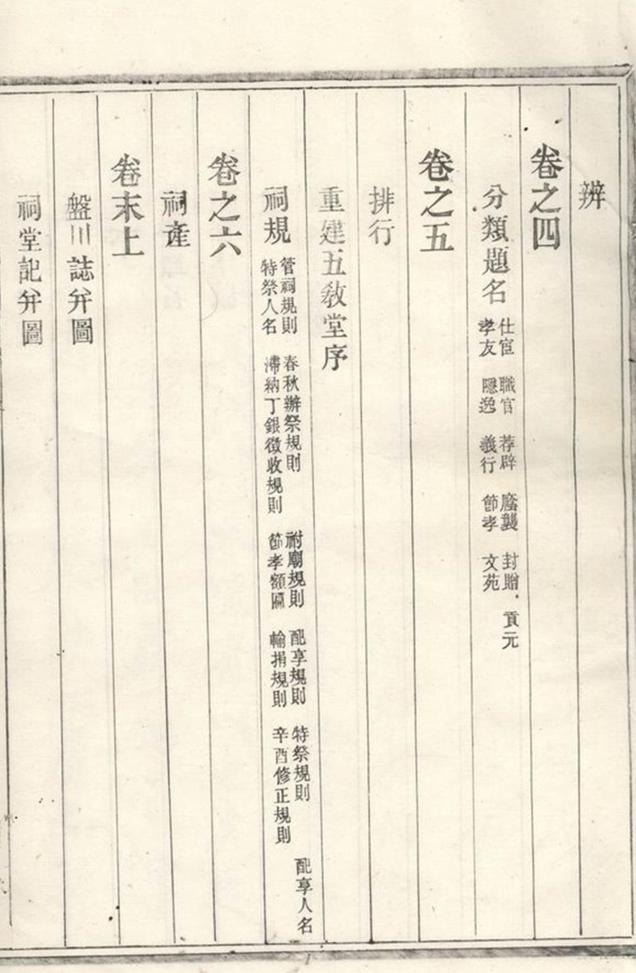 辨
卷之四
分類題名 仕宦 職官 荐辟 廕襲 封贈 貢元
孝友 隱逸 義行 節孝 文苑
卷之五
排行
重建五教堂序
祠規 管祠規則 春秋辦祭規則 祔廟規則 配享規則 特祭規則 配享人名
特祭人名 滯納丁銀徵收規則 節孝額匾 輸捐規則 辛酉修正規則
卷之六
祠產
卷末上
盤川誌并圖
祠堂記并圖